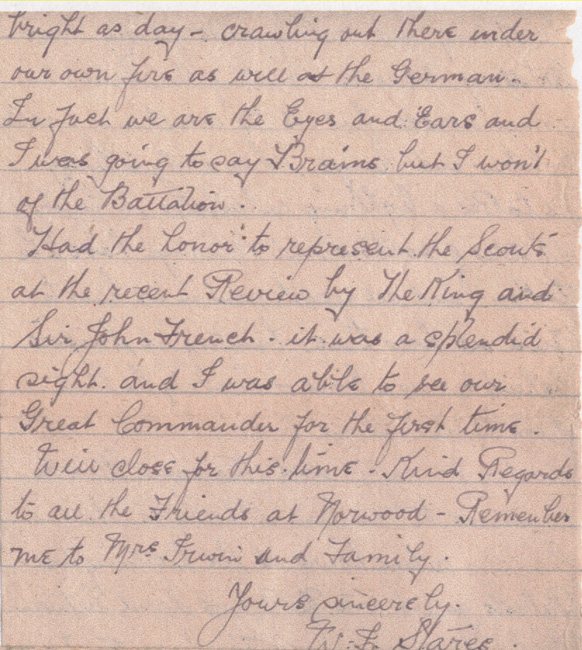 bright as day - crawling out there under
our own fire as well as the German.
In fact we are the Eyes and Ears and
I was going to say Brains but I won't
of the Battalion.
Had the honor to represent the Scouts
at the recent Review by The King and
Sir John French. it was a splendid
sight. and I was able to see our
Great Commander for the first time.
Will close for this time. Kind Regards
to all the Friends at Norwood - Remember
me to Mrs Irwin and Family.
Yours sincerely.
W. F.